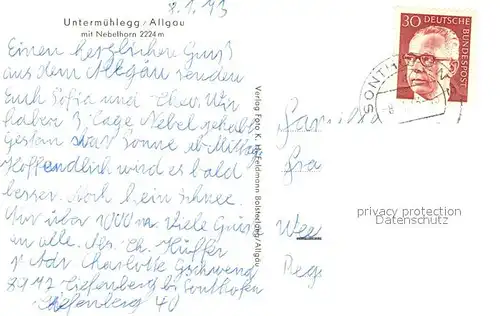 8.1.73
Untermühlegg / Allgäu
mit Nebelhorn 2224 m
Einen herzlichen Gruß
aus dem Allgäu senden
Euch Sofia und Theo. Wir
haben 3 Tage Nebel gehabt
Gestern war Sonne ab Mittag
Hoffendlich wird es bald
besser. Noch kein Schnee.
Nur über 1000 m. Viele Grüße
an alle. Abs. Ch. Küffer
Adr Charlotte Gschwend
8972 Tiefenberg bei Sonthofen
Tiefenberg 40
Verlag Foto K. H. Feldmann Bolsterlang/Allgäu
30 DEUTSCHE BUNDESPOST
SONTH
Familie
Fra
Wee
Rege
privacy protection
Datenschutz